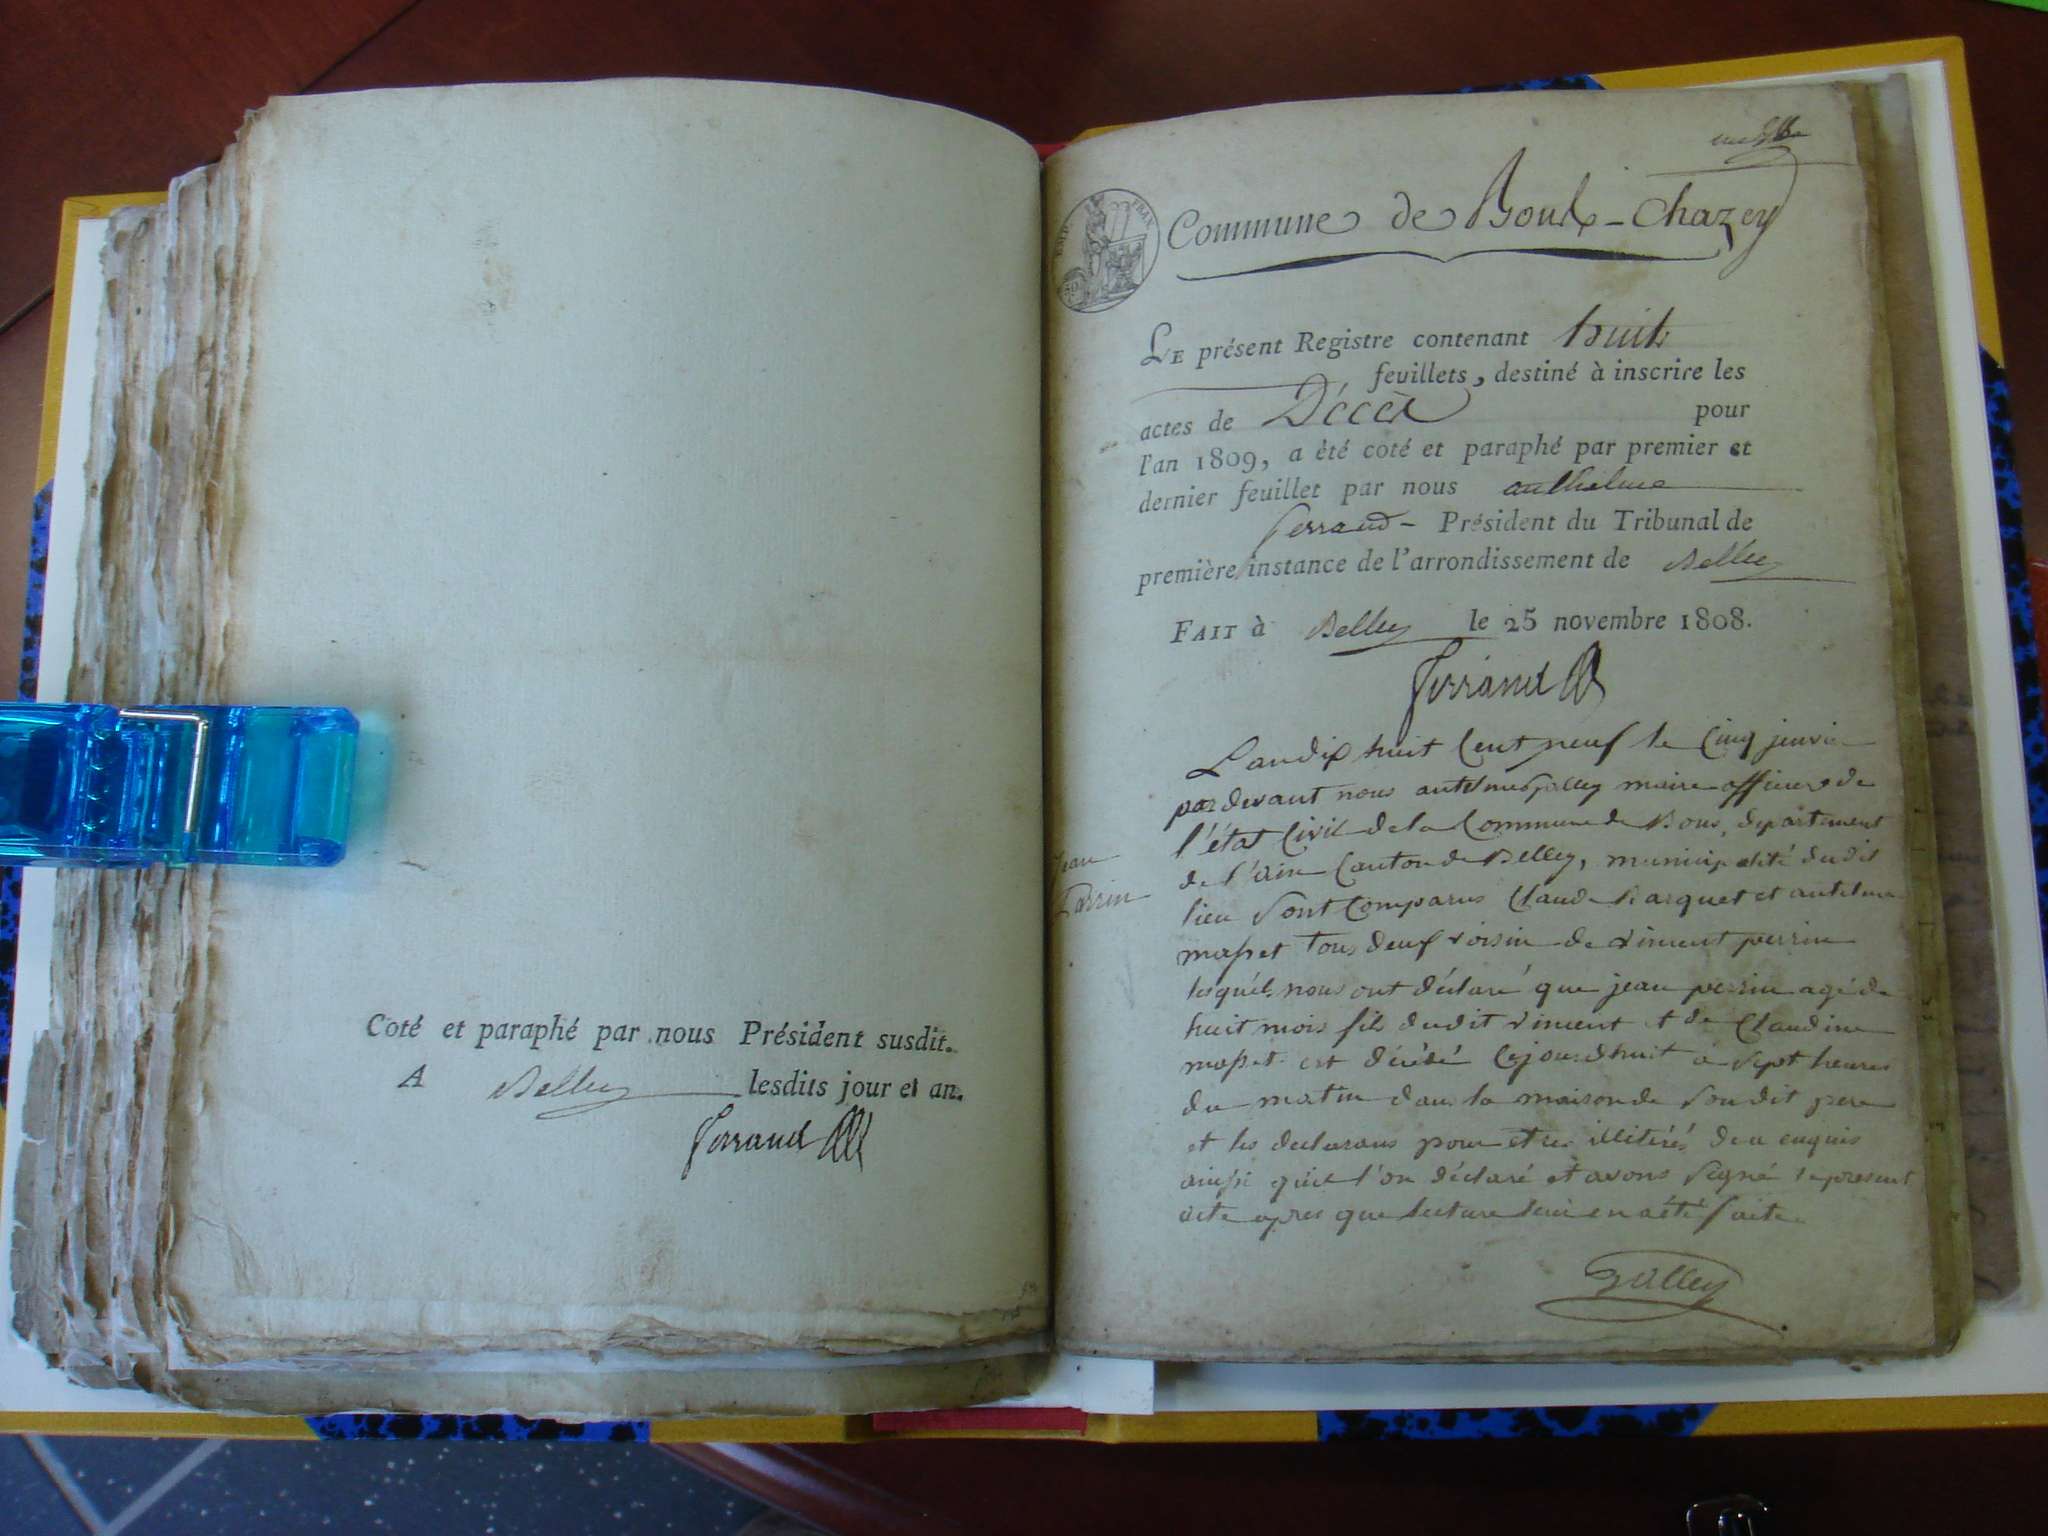 Coté et paraphé par nous Président susdit.
A Belley lesdits jour et an.
Ferrand
EMP. FRAN.
Commune de Bouls-Chazey
LE présent Registre contenant huit
feuillets, destiné à inscrire les
actes de Décès pour
l'an 1809, a été coté et paraphé par premier et
dernier feuillet par nous anthelme
ferrand - Président du Tribunal de
première instance de l'arrondissement de Belley
FAIT à Belley le 25 novembre 1808.
Ferrand
Jean
Perrin
L'an dix huit Cent neuf le Cinq jenvier
par devant nous antelme Galley maire officier de
l'état Civil de la Commune de Bons, departement
de l'ain Canton de Belley, municipalité dudit
lieu Sont Comparus Claude et antelme
masset tous deux voisin de vincent perrin
lesquel nous ont déclaré que jean perrin agé de
huit mois fils dudit vincent et de Claudine
masset est décédé Cejourdhuit à Sept heures
du matin dans la maison de Son dit pere
et les declarans pour etre illitérés de ce enquis
ainssi quil l'on déclaré et avons Signé le present
acte apres que lecture leur en a été faite.
Galley